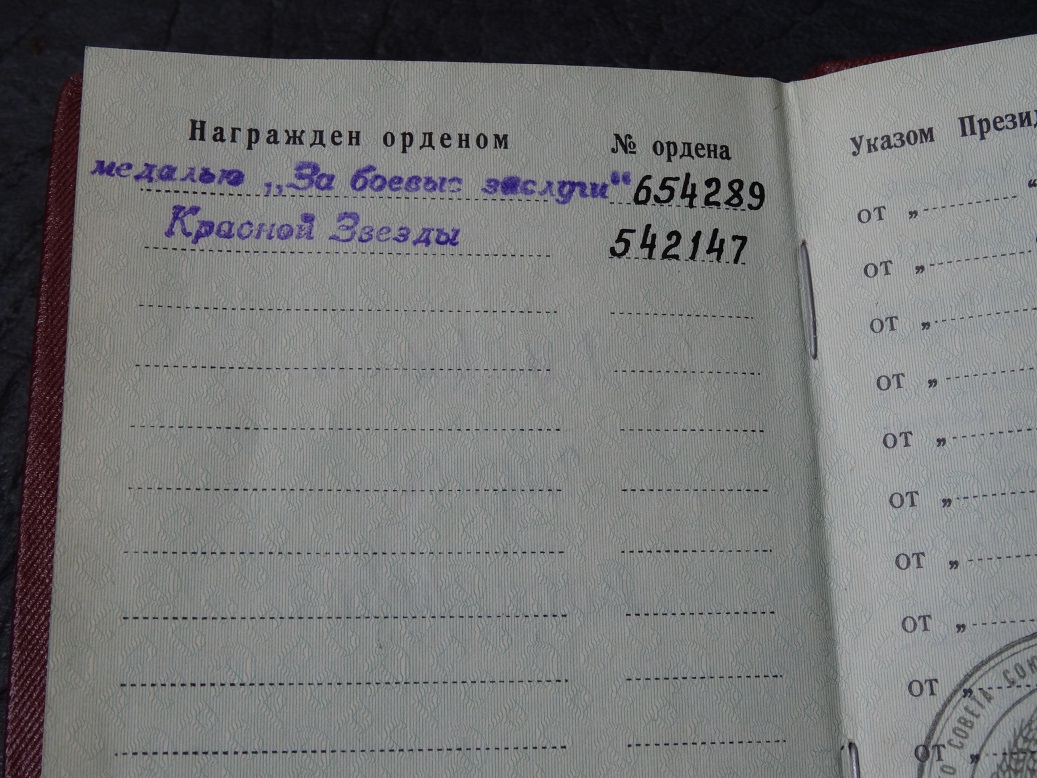 Награжден орденом № ордена
медалью „За боевые заслуги“ 654289
Красной Звезды 542147
Указом Прези
от „ “
от „
от „
от „
от „
от „
от „
от „
от „
от „
СОВЕТА СОЮ